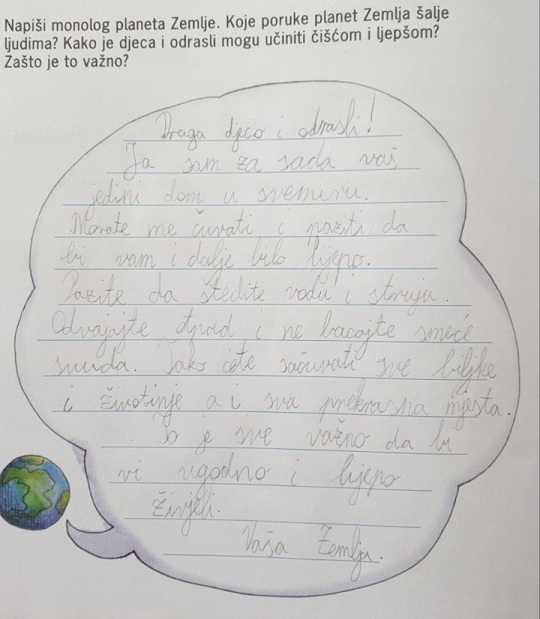 Napiši monolog planeta Zemlje. Koje poruke planet Zemlja šalje
ljudima? Kako je djeca i odrasli mogu učiniti čišćom i ljepšom?
Zašto je to važno?
Draga djeco i odrasli!
Ja sam za sada vaš
jedini dom u svemiru.
Morate me čuvati i paziti da
bi vam i dalje bilo lijepo.
Pazite da štedite vodu i struju.
Odvajajte otpad i ne bacajte smeće
svuda. Tako ćete sačuvati sve biljke
i životinje a i sva prekrasna mjesta.
To je sve važno da bi
vi ugodno i lijepo
živjeli.
Vaša Zemlja.